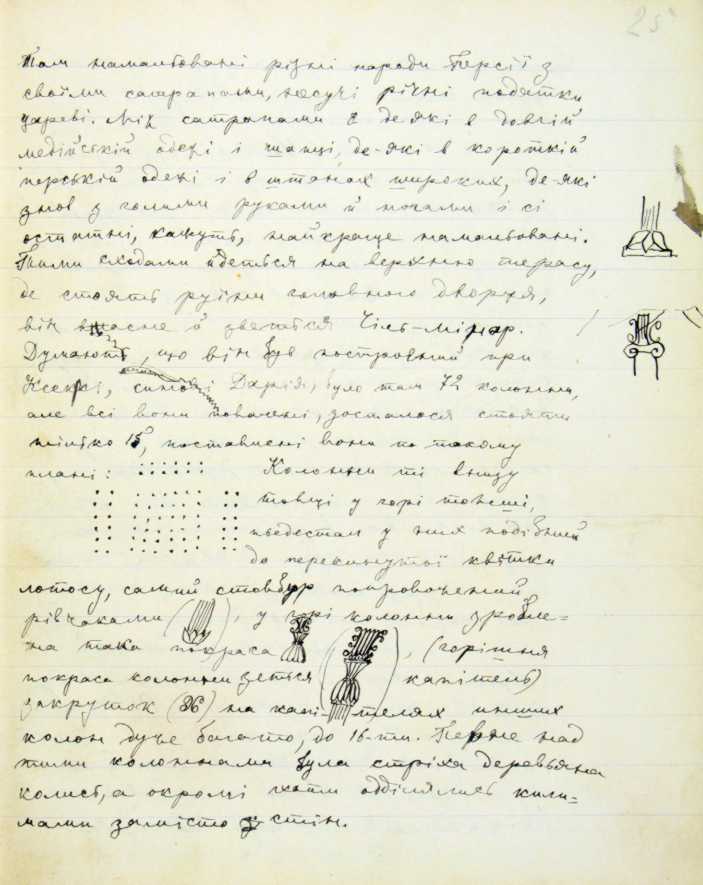 25
Там намальовані різні народи Персії з
своїми сатрапами, несучі річні податки
цареві. Між сатрапами є де-які в довгій
медійській одежі і шапці, де-які в короткій
перській одежі і в штанах широких, де-які
знов з голими руками й ногами і сі
остатні, кажуть, найкраще намальовані.
Тими сходами йдеться на верхню терасу,
де стоять руїни головного дворця,
він власне й зветься Чіль-Мінар.
Думають, що він був построєний при
Ксерксі, синові Дарія, було там 72 колонни,
але всі вони повалені, досталося стояти
тілько 15, поставлені вони по такому
плані: Колонни ті внизу
товщі у горі тонші,
педестал у них подібний
до перекинутої квітки
лотосу, самий стовбур попроволочений
рівчаками ( ), у горі колонни зробле=
на така покраса ( ), (горішня
покраса колонни зветься капітель)
закруток ( ) на капі-телях инших
колон дуже багато, до 16-ти. Певне над
тими колоннами була стріха деревьяна
колись, а окромі хати одділялись кили=
мами замість стін.